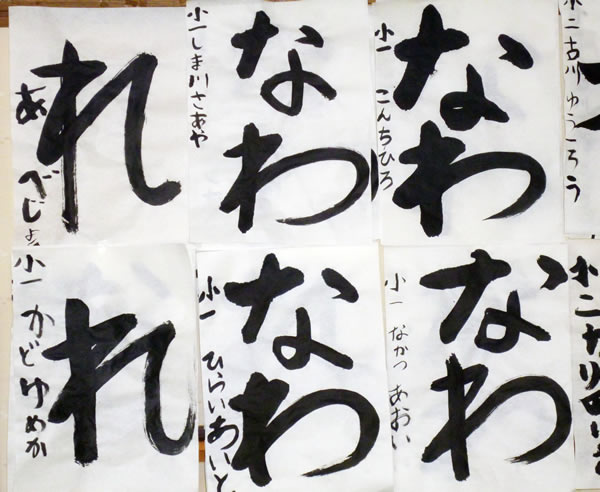 れ
あべじょ
なわ
小一しま川さあや
なわ
小一 こんちひろ
小二古川ゆうごろう
れ
小一かどゆめか
なわ
小一 ひらいあいと
なわ
小一 なかつ あおい
小二